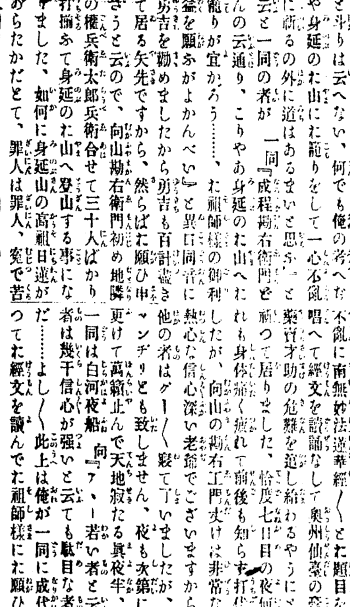 と斗りは云へない、何でも俺の考へだ
や身延のお山にお籠りをして一心不亂
に祈るの外に道はあるまいと思ふ』と
云と一同の者が　一同『成程勘右衛門ど
んの云通り、こりやあ身延のお山へお
籠りが宜かろう……、お祖師様の御利
益を願ふがよかんべい』と異口同音に
勇吉を勸めましたから勇吉も百計盡き
て居る矢先ですから、然らばお願ひ申
さうと云ので、向山勘右衛門初め地隣
の權兵衛太郎兵衛合せて三十人ばかり
打揃ふて身延のお山へ登山する事にな
りました、如何に身延山の高祖日蓮が
あらたかだとて、罪人は罪人、寃で苦
不亂に南無妙法蓮華經〳〵とお題目を
唱へて經文を讀誦なして奥州仙臺の
藥賣才助の危難を逭し給わるやうにと
祈つて居りました、恰度七日目の夜
れも身体痛く疲れて前後も知らず打
したが、向山の勘右工門丈けは非常な
熱心な信心深い老爺でございますから
他の者はグー〳〵寝て了いましたが、
マンヂリとも致しません、夜も次第に
更けて萬籟止んで天地寂たる眞夜半、
一同は白河夜船　向『アヽ若い者と云
者は幾干信心が強いと云ても駄目な者
だ……よし〳〵此上は俺が一同に成代
つてお經文を讀んでお祖師様にお願ひ